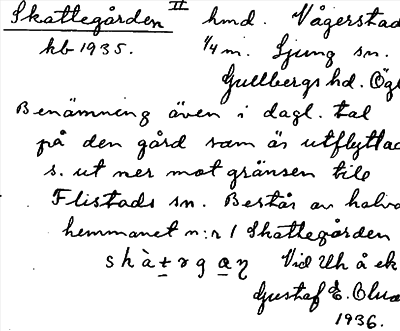 Skattegården II hmd. Vågerstad
kb 1935. 1/4 m. Ljung sn.
Gullbergs hd. Ögl
Benämning även i dagl. tal
på den gård som är utflyttad
s. ut ner mot gränsen till
Flistads sn. Består av halva
hemmanet n:r 1 Skattegården
Vid Uh å ek
Gustaf E. Olua
1936.